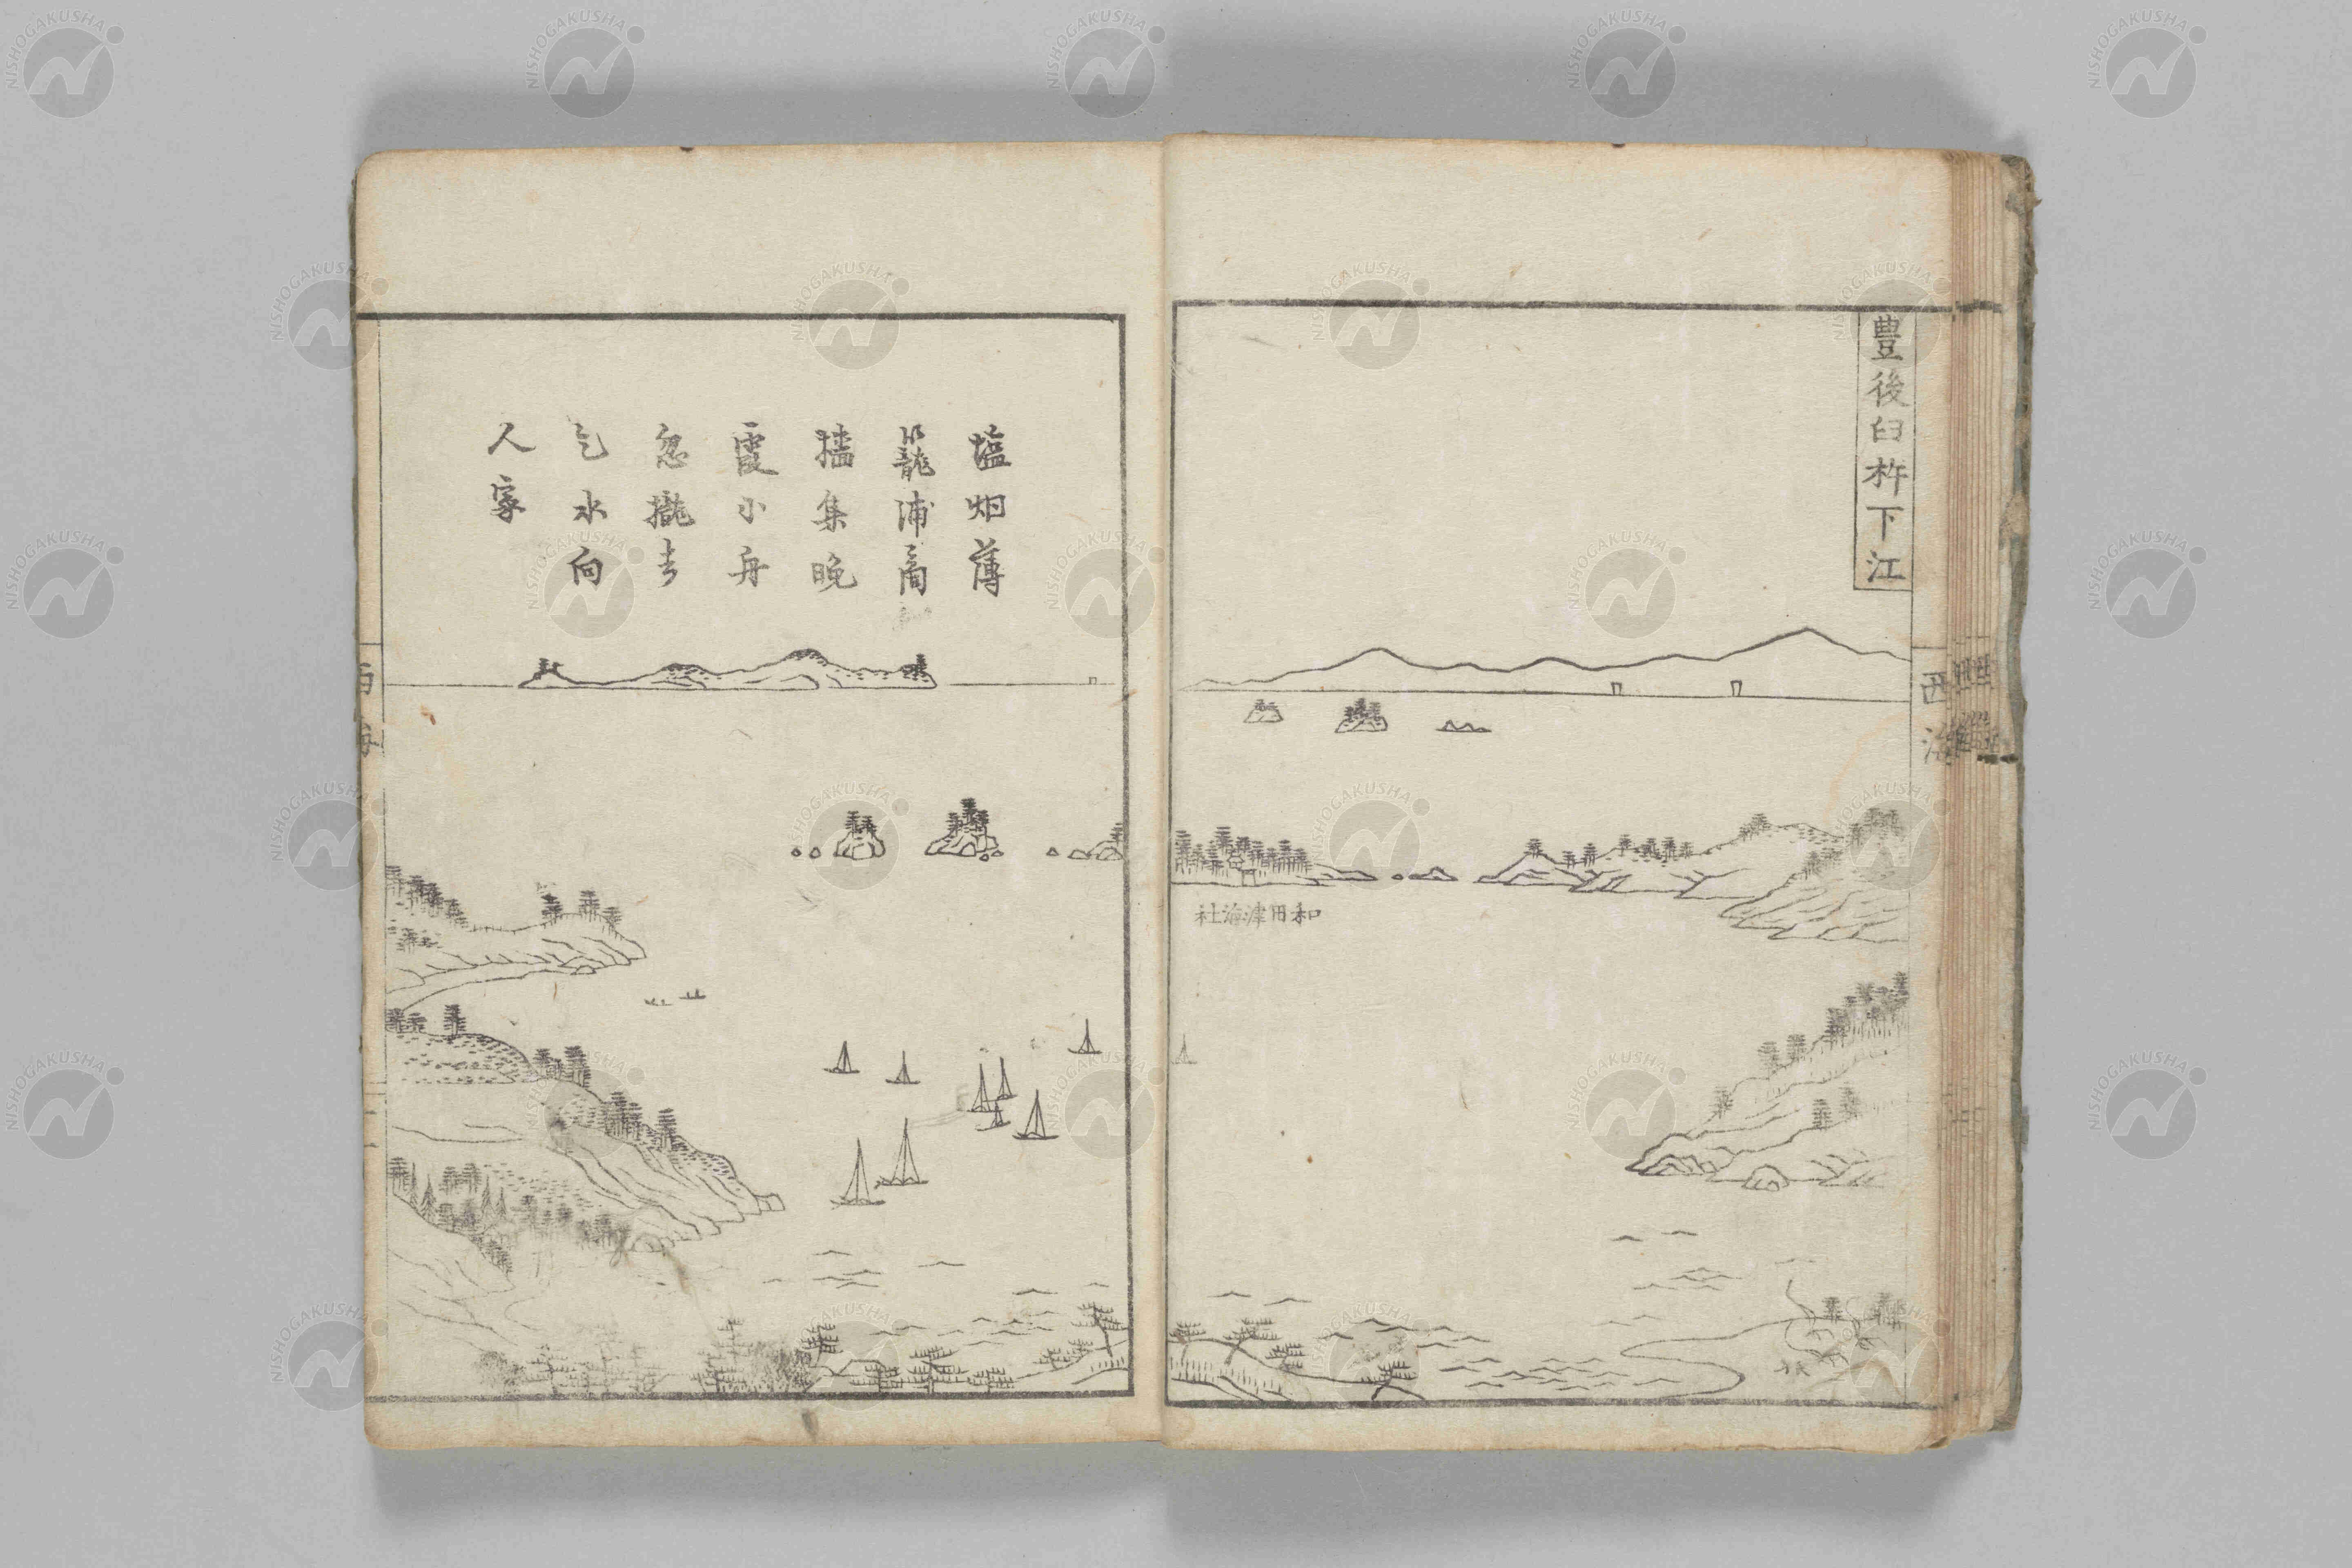 豊後臼杵下江
西海
和田津海社
塩烟薄
籠浦商
檣集晩
霞小舟
忽攏去
乞水向
人家
西海
NISHOGAKUSHA